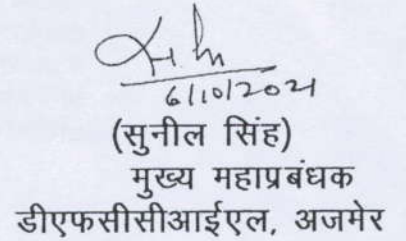 6/10/2021
(सुनील सिंह)
मुख्य महाप्रबंधक
डीएफसीसीआईएल, अजमेर